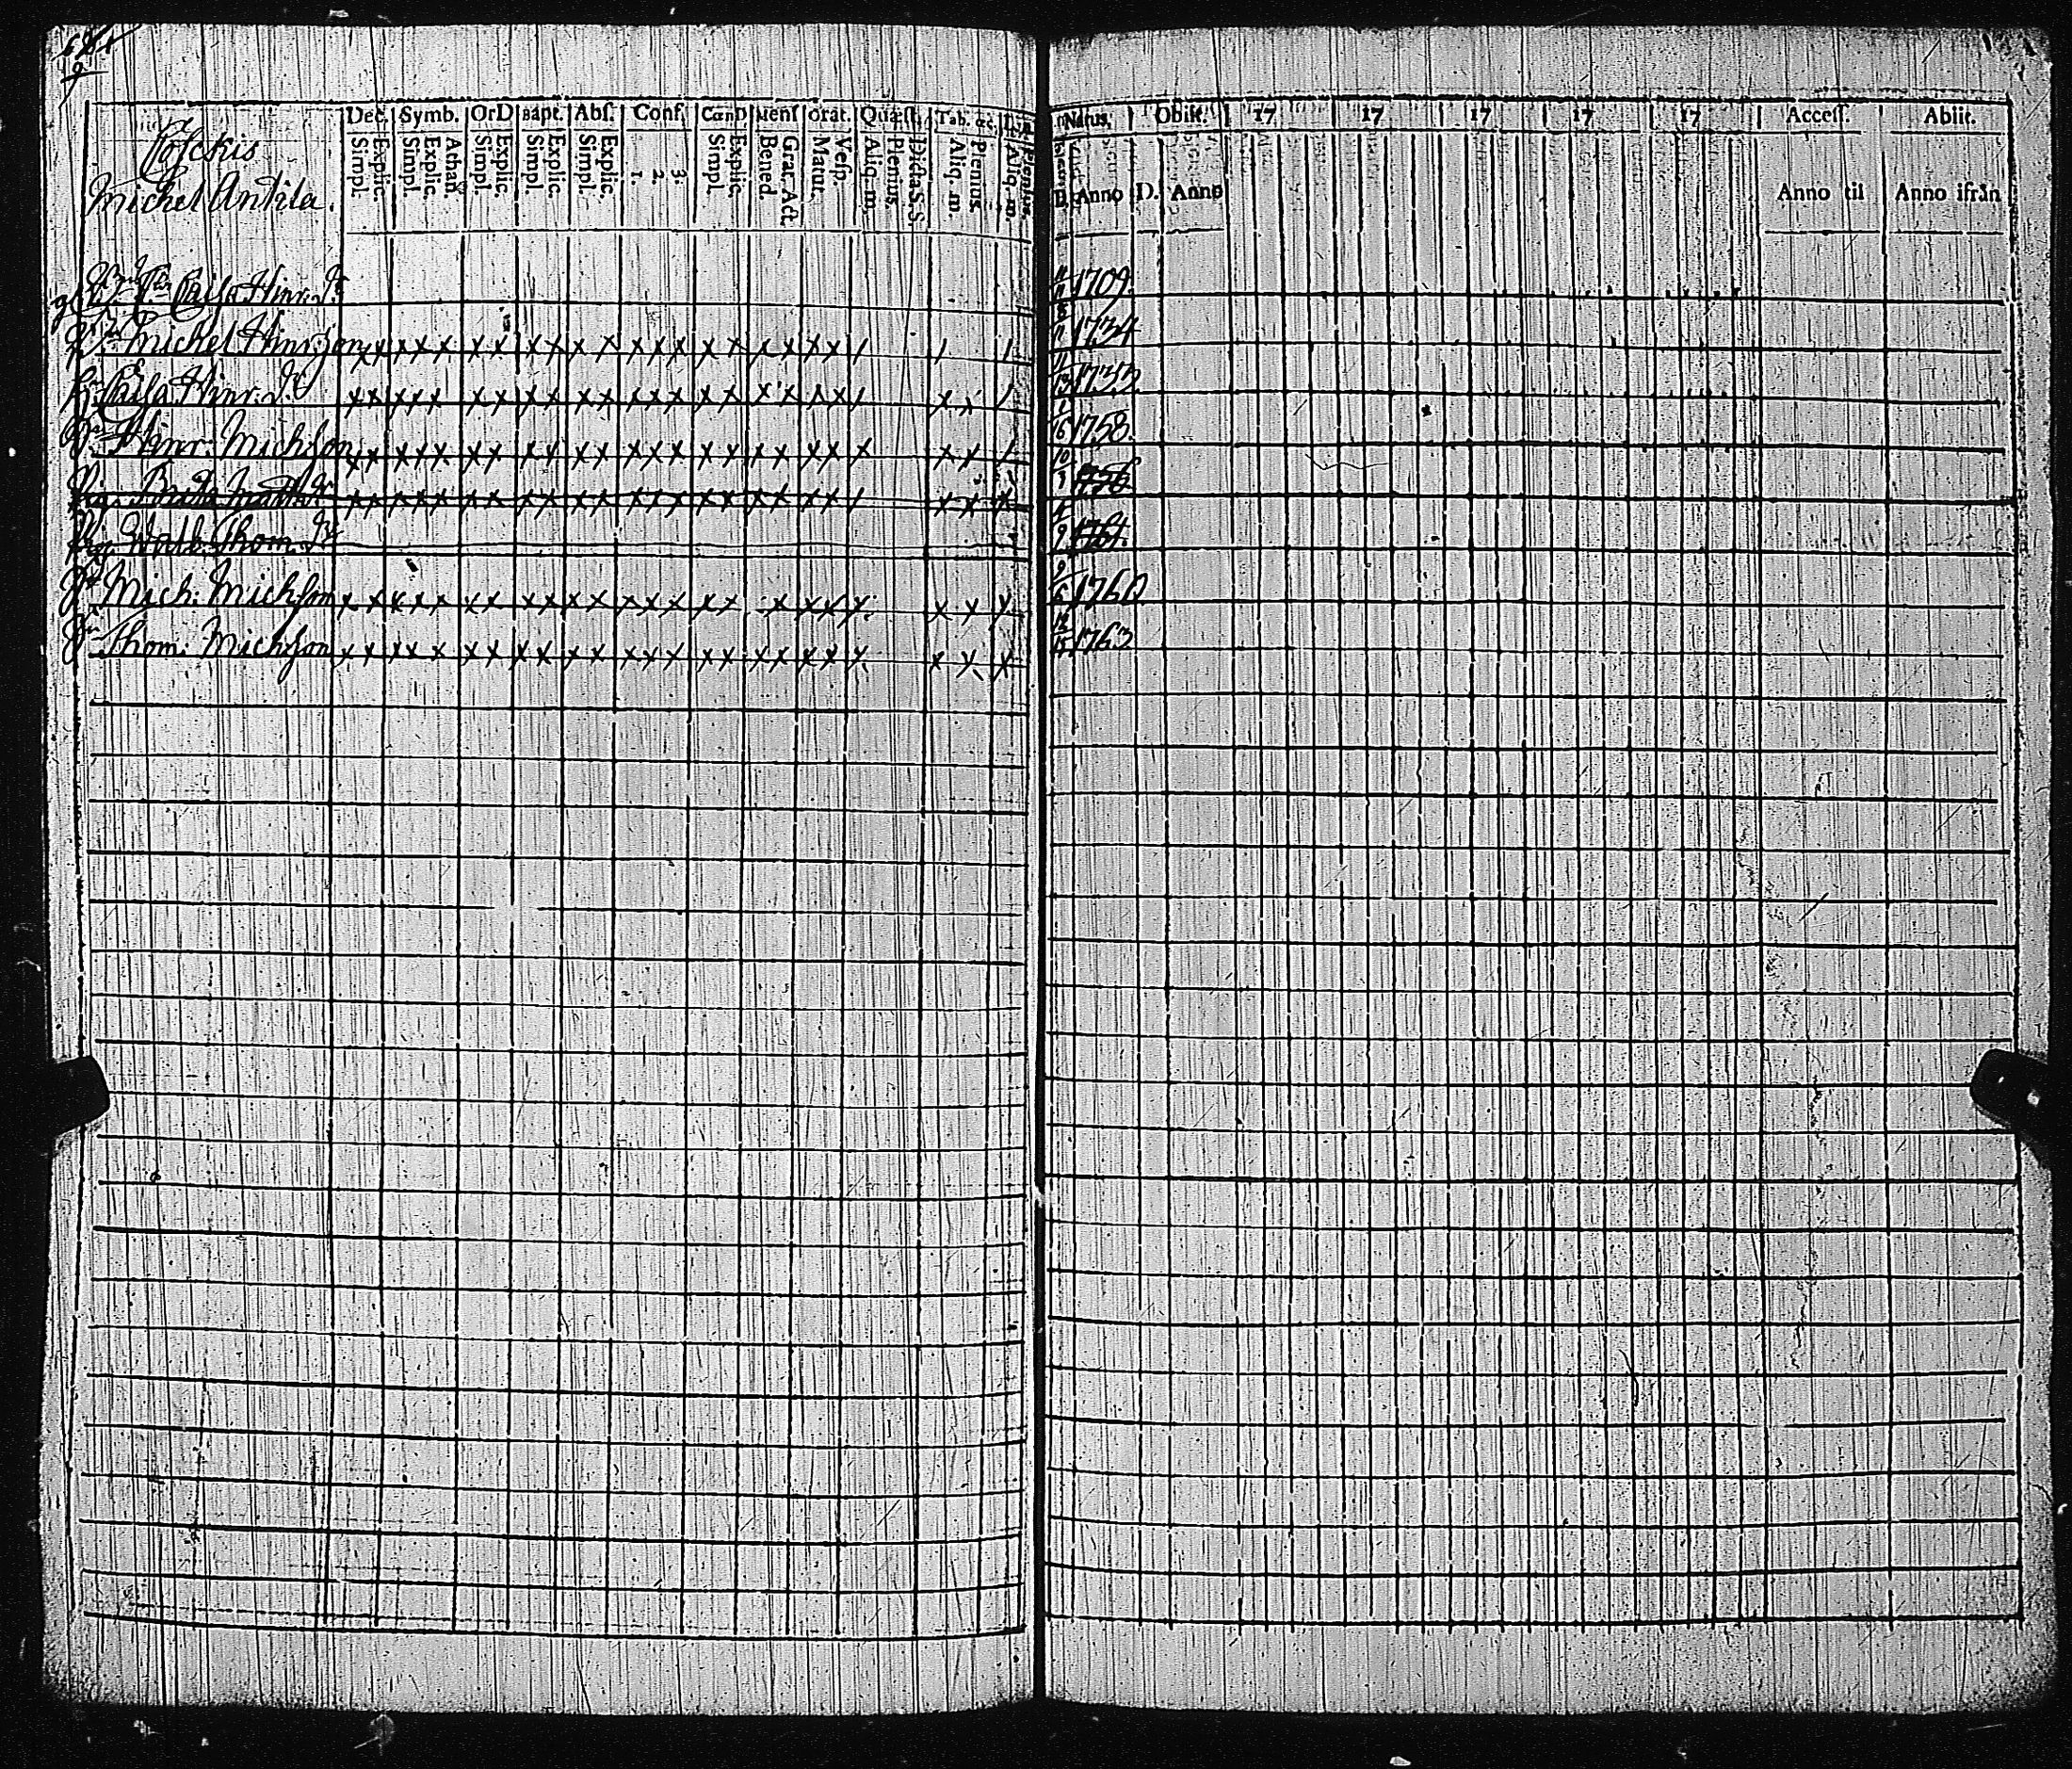 Dec. Symb. OrD Bapt. Abſ. Conf. CœnD Menſ orat. Quæſt. Tab. œc.
Simpl. Explic. Simpl. Explic. Athan. Simpl. Explic. Simpl. Explic. Simpl. Explic. 1. 2. 3. Simpl. Explic. Bened. Grat. Act Matut. Veſp. Aliq. m. Plenius. Dicta S. S. Aliq. m. Plenius. Aliq. m. Plenius.
Michel Antila.
Caisa Hinr. dr
Michel Hinrsson
Caisa Hinr. dr
Hinr. Michsson
Brita Matts dr
Walb. Thom. dr
Mich. Michsson
Thom. Michsson
Natus, Obiit. 17 17 17 17 17 Acceſſ. Abiit.
D. Anno D. Anno Anno til Anno ifrån
1709
1734
1733
1758
1756
1761
1760
1763